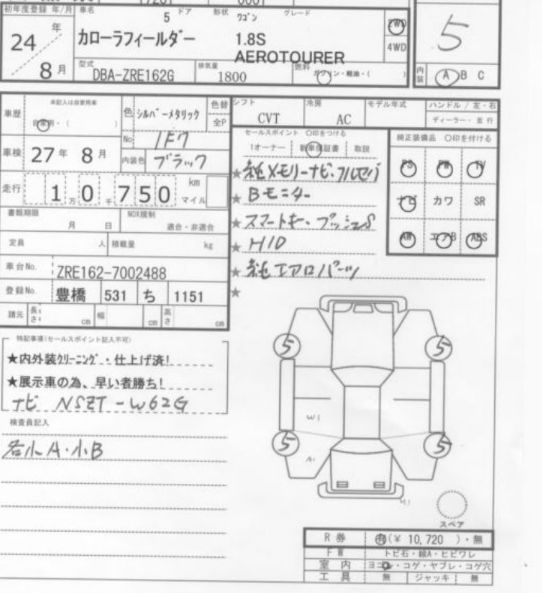 初年度登録 年/月 車名 ドア 形状 グレード
24 年 カローラフィールダー 5 ワゴン 1.8S 2WD
AEROTOURER 4WD
8 月 型式 DBA-ZRE162G 排気量 1800 燃料 ガソリン・軽油・( )
5
内装 A B C
車歴 自家用・( ) 色 シルバーメタリック 色替
No 1F7 全P
車検 27 年 8 月 内装色 ブラック
走行 10750 km マイル
書類期限 月 日 NOX規制 適合・非適合
定員 人 積載量 kg
車台No. ZRE162-7002488
登録No. 豊橋 531 ち 1151
諸元 長さ cm 幅 cm 高さ cm
シフト 冷房 モデル年式 ハンドル / 左・右
CVT AC ディーラー・並行
セールスポイント ○印をつける
1オーナー 新車保証書 取説
★純メモリーナビ・フルセグ
★Bモニター
★スマートキー・プッシュS
★HID
★純エアロパーツ
★
純正装備品 ○印を付ける
PS PW TV
ナビ カワ SR
AW エアB ABS
特記事項(セールスポイント記入不可)
★内外装クリーニング・仕上げ済!
★展示車の為、早い者勝ち!
ナビ NSZT-W62G
検査員記入
若小A・小B
5 5
5 5
W1
A1
スペア
R券 有(¥ 10,720 )・無
FW トビ石・線A・ヒビワレ
室内 ヨゴレ・コゲ・ヤブレ・コゲ穴
工具 無 ジャッキ 無